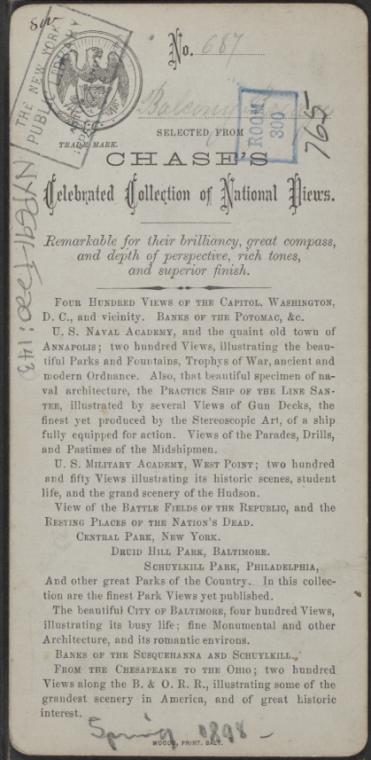 No. 687
Balcony Bridge
SELECTED FROM
TRADE MARK.
THE NEW YORK
PUBLIC LIBRARY
ROOM
300
765
CHASE'S
Celebrated Collection of National Views.
Remarkable for their brilliancy, great compass,
and depth of perspective, rich tones,
and superior finish.
NYPG91-F220:143
FOUR HUNDRED VIEWS OF THE CAPITOL, WASHINGTON,
D. C., and vicinity. BANKS OF THE POTOMAC, &c.
U. S. NAVAL ACADEMY, and the quaint old town of
ANNAPOLIS; two hundred Views, illustrating the beau-
tiful Parks and Fountains, Trophys of War, ancient and
modern Ordnance. Also, that beautiful specimen of na-
val architecture, the PRACTICE SHIP OF THE LINE SAN-
TEE, illustrated by several Views of Gun Decks, the
finest yet produced by the Stereoscopic Art, of a ship
fully equipped for action. Views of the Parades, Drills,
and Pastimes of the Midshipmen.
U. S. MILITARY ACADEMY, WEST POINT; two hundred
and fifty Views illustrating its historic scenes, student
life, and the grand scenery of the Hudson.
View of the BATTLE FIELDS OF THE REPUBLIC, and the
RESTING PLACES OF THE NATION'S DEAD.
CENTRAL PARK, NEW YORK.
DRUID HILL PARK, BALTIMORE.
SCHUYLKILL PARK, PHILADELPHIA,
And other great Parks of the Country. In this collec-
tion are the finest Park Views yet published.
The beautiful CITY OF BALTIMORE, four hundred Views,
illustrating its busy life; fine Monumental and other
Architecture, and its romantic environs.
BANKS OF THE SUSQUEHANNA AND SCHUYLKILL.
FROM THE CHESAPEAKE TO THE OHIO; two hundred
Views along the B. & O. R. R., illustrating some of the
grandest scenery in America, and of great historic
interest.
Spring 1898 -
WOODS, PRINT. BALT.